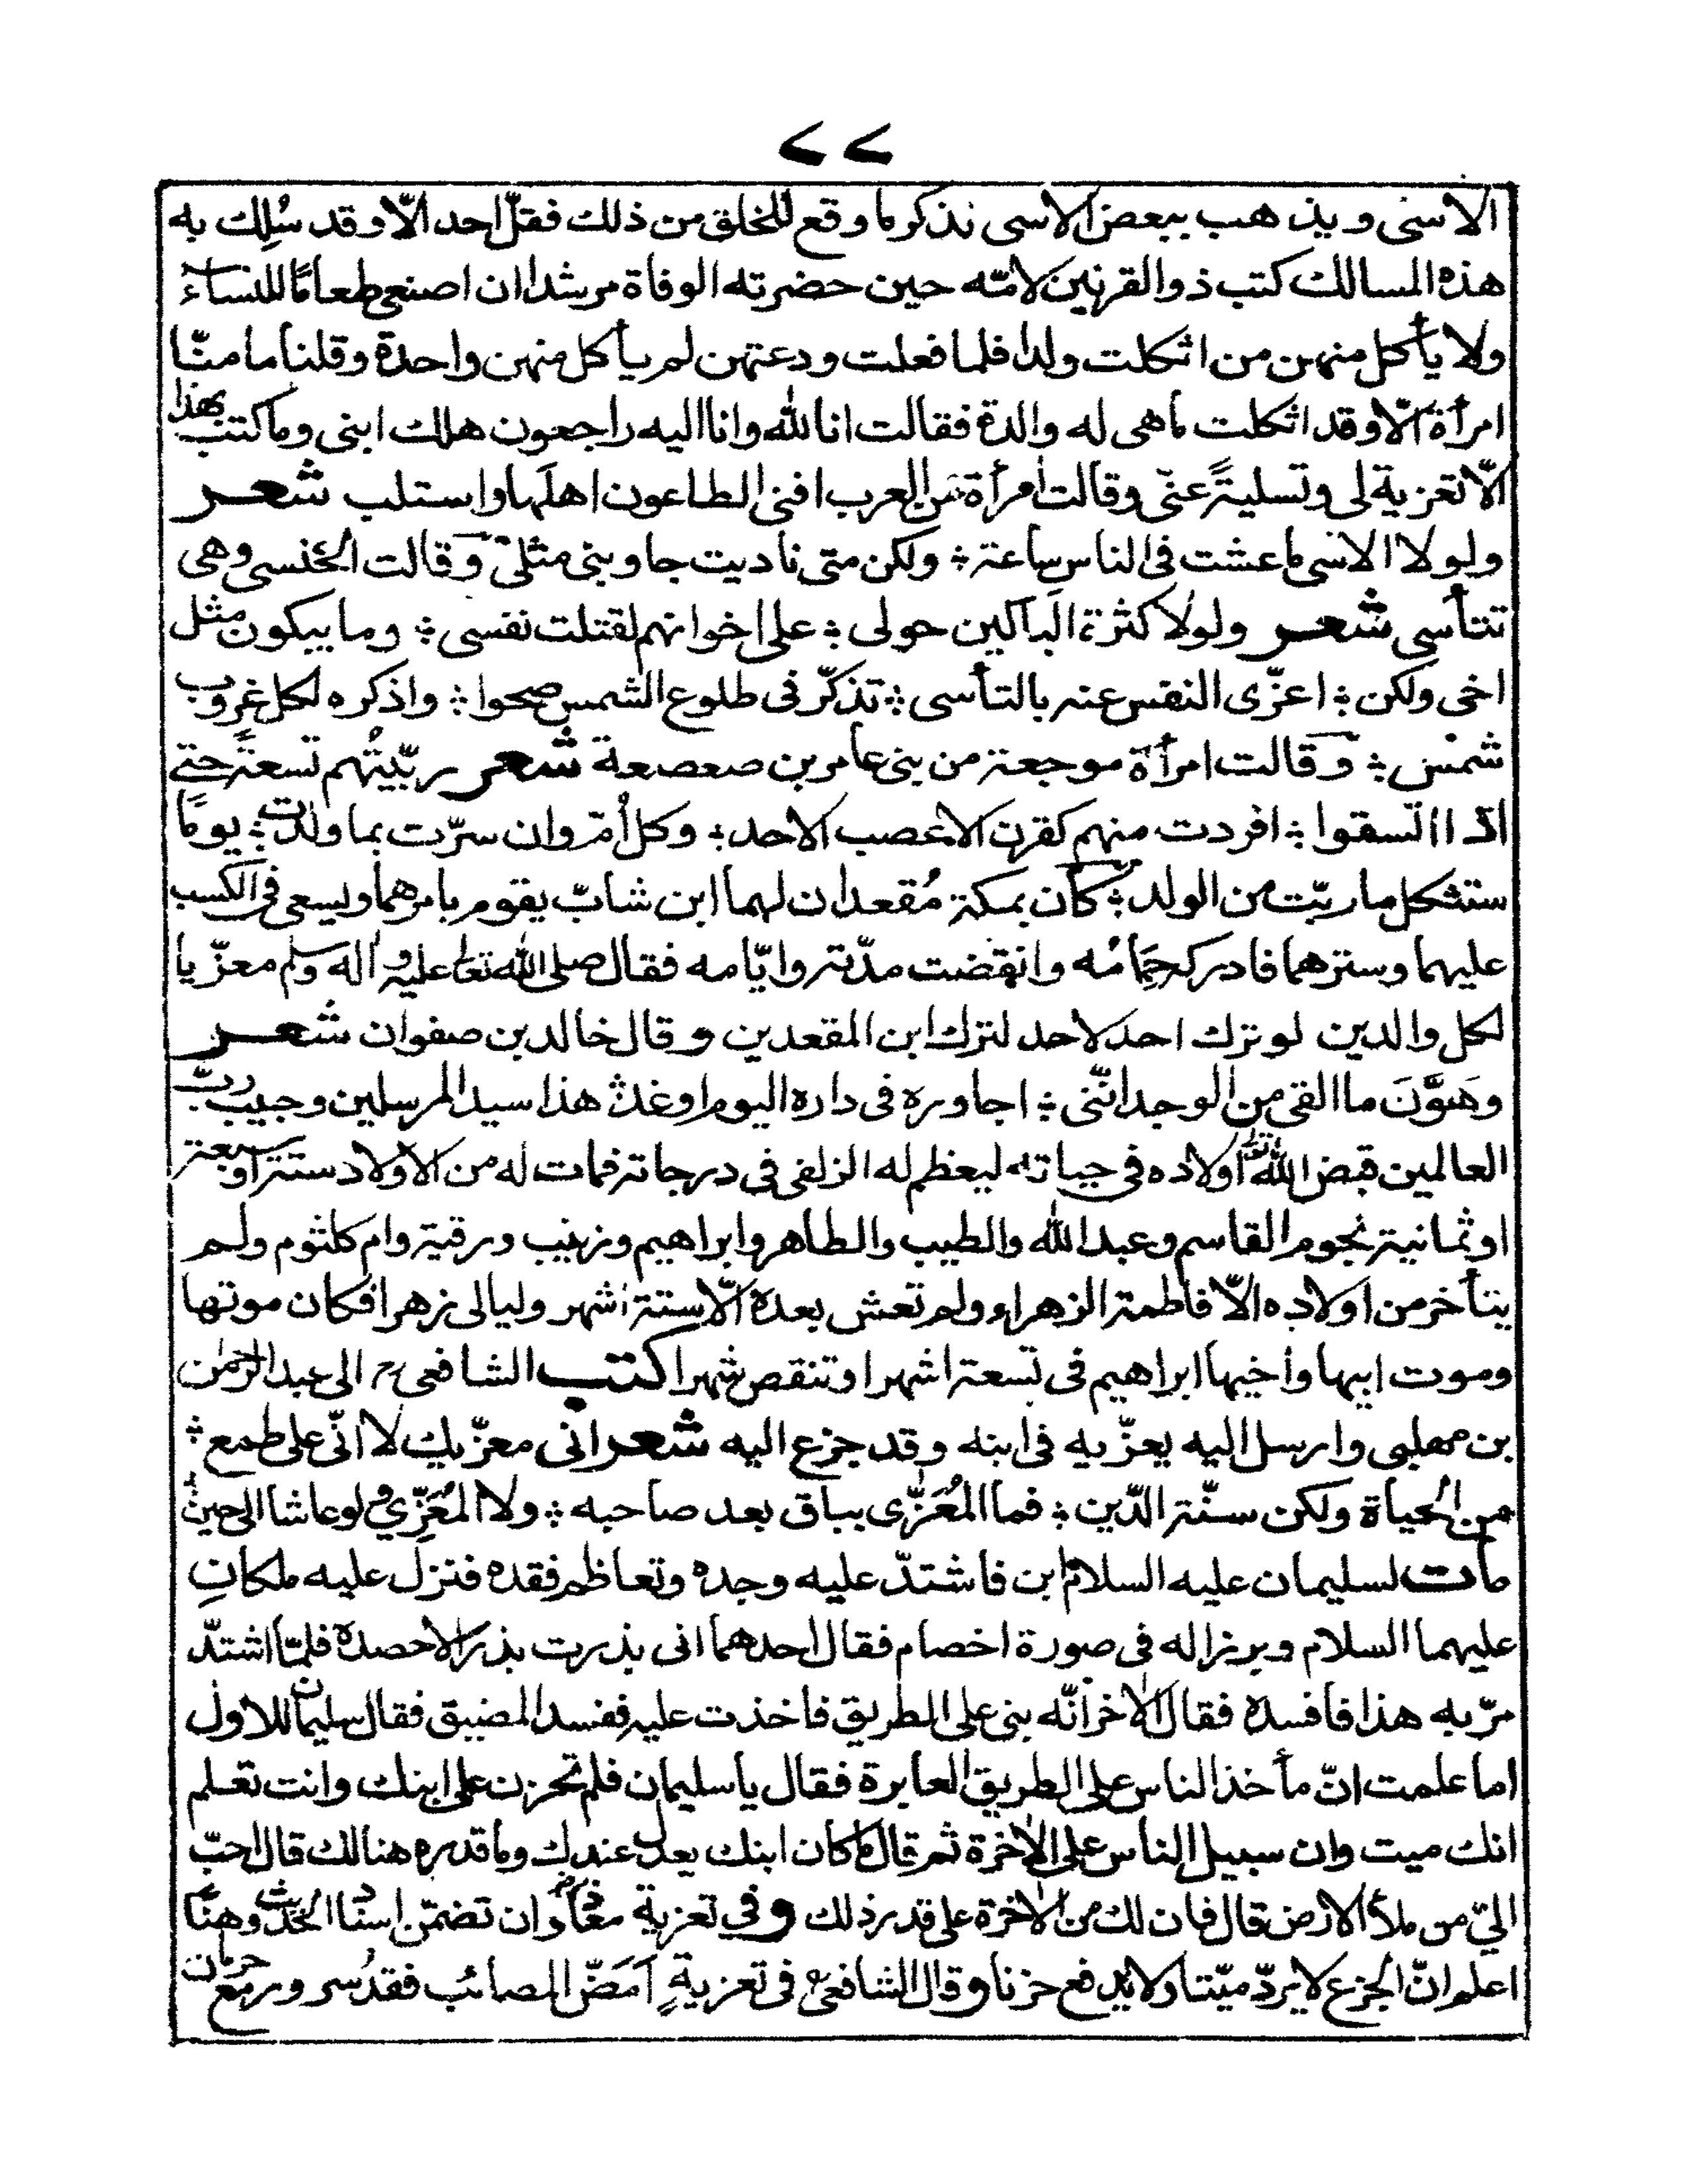 ٧٧
الاسنى ويذهب ببعض الاسى نذكر ما وقع للخلق من ذلك فقلّ احد الّا وقد سُلِك به
هذه المسالك كتب ذو القرنين لامّه حين حضرته الوفاة مرشدا ان اصنعى طعامًا للنساء
ولا يأكل منهن من اثكلت ولدا فلما فعلت ودعتهن لم يأكل منهن واحدة وقلنا ما منّا
امرأة الّا وقد اثكلت ما هى له والدة فقالت انا لله وانا اليه راجعون هلك ابنى وما كتب بهذا
الّا تعزية لى وتسليةً عنّى وقالت امرأة من العرب افنى الطاعون اهلها واستلب شعر
ولولا الاسى ما عشت فى الناس ساعة ؞ ولكن متى ناديت جاوبنى مثلى وقالت الخنسى وهى
تتأسى شعر ولولا كثرة الباكين حولى ؞ على اخوانهم لقتلت نفسى ؞ وما يبكون مثل
اخى ولكن ؞ اعزّى النفس عنه بالتأسى ؞ تذكّر فى طلوع الشمس صحوا ؞ واذكره لكل غروب
شمس ؞ وقالت امرأة موجعة من بنى عامر بن صعصعة شعر ربّيتُهم تسعةً حتے
اذا اتسقوا ؞ افردت منهم كقرن الاعصب الاحد ؞ وكل أمّ وان سرّت بما ولدت ؞ يومًا
ستثكل ما ربّت من الولد ؞ كان بمكة مُقعدان لهما ابن شابّ يقوم بامرهما ويسعى فى الكسب
عليهما وسترهما فادركه حِمَامُه وانقضت مدّته وايّامه فقال صلى الله تعالى عليه وآله وسلم معزّيا
لكل والدين لو ترك احد لاحد لترك ابن المقعدين وقال خالد بن صفوان شعر
وهَوَّنَ ما القى من الوجد انّنى ؞ اجاوره فى داره اليوم او غد؞ هذا سيد المرسلين وحبيب ربّ
العالمين قبض الله تعالى اولاده فى حياته ليعظم له الزلفى فى درجاته فمات له من الاولاد ستة او سبعة
او ثمانية نجوم القاسم وعبد الله والطيب والطاهر وابراهيم وزينب ورقية وام كلثوم ولم
يتأخر من اولاده الّا فاطمة الزهراء ولم تعش بعده الّا ستة اشهر وليالى زهرا فكان موتها
وموت ابيها واخيها ابراهيم فى تسعة اشهر او تنقص شهرا كتب الشافعىؒ الى عبد الرحمٰن
بن مهلبى وارسل اليه يعزّيه فى ابنه وقد جزع اليه شعر انى معزّيك لا انّى على طمع ؞
من الحياة ولكن سنّة الدّين ؞ فما المُعَزّى بباق بعد صاحبه ؞ ولا المُعَزِّي ولو عاشا الى حين
مات لسليمان عليه السلام ابن فاشتدّ عليه وجده وتعاظم فقده فنزل عليه ملكانِ
عليهما السلام وبرزا له فى صورة اخصام فقال احدهما انى بذرت بذرا لاحصده فلمّا اشتدّ
مرّ به هذا فافسده فقال الآخر انّه بنى على الطريق فاخذت عليه ففسد المضيق فقال سليمان للاول
اما علمت انّ مأخذ الناس على الطريق العابرة فقال يا سليمان فلم تحزن على ابنك وانت تعلم
انك ميت وان سبيل الناس على الآخرة ثم قال ما كان ابنك يعدل عندك وما قدره هنالك قال احبّ
اليّ من ملأ الارض قال فان لك من الآخرة على قدر ذلك وفي تعزية معاذ وان تضمّن اسنادا الحدّث وهنًا
اعلم انّ الجزع لا يردّ ميّتا ولا يدفع حزنا وقال الشافعىؒ فى تعزيةٍ اَمَضّ المصائب فقد سُر ور مع حرمان